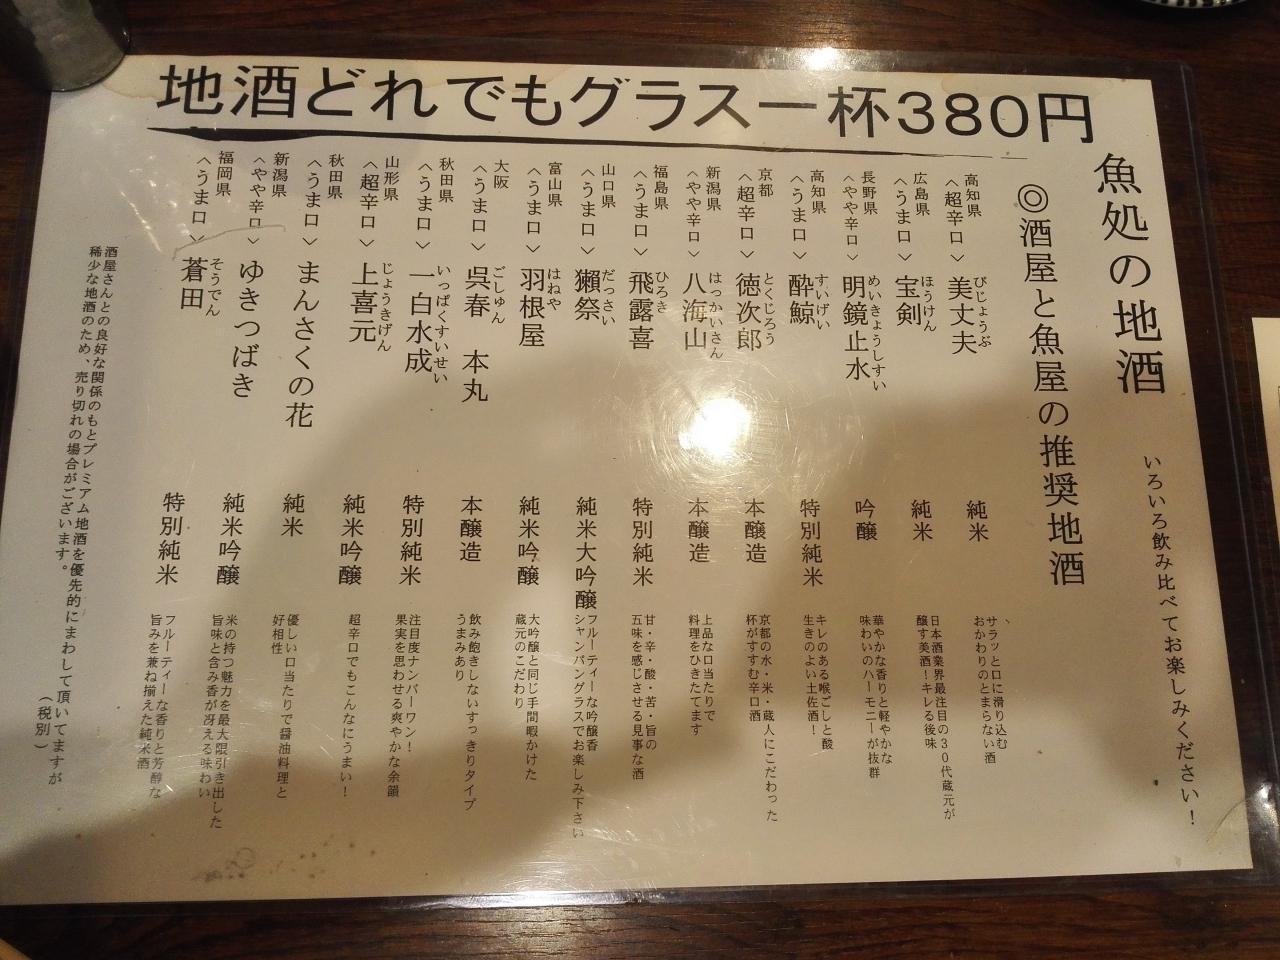 地酒どれでもグラス一杯380円
魚処の地酒
いろいろ飲み比べてお楽しみください！
◎酒屋と魚屋の推奨地酒
高知県
〈超辛口〉
美丈夫
びじょうぶ
純米
サラッと口に滑り込む、
おかわりのとまらない酒
広島県
〈うま口〉
宝剣
ほうけん
純米
日本酒業界最注目の30代蔵元が
醸す美酒！キレる後味
長野県
〈やや辛口〉
明鏡止水
めいきょうしすい
吟醸
華やかな香りと軽やかな
味わいのハーモニーが抜群
高知県
〈うま口〉
酔鯨
すいげい
特別純米
キレのある喉ごしと酸
生きのよい土佐酒！
京都
〈超辛口〉
徳次郎
とくじろう
本醸造
京都の水・米・蔵人にこだわった
杯がすすむ辛口酒
新潟県
〈やや辛口〉
八海山
はっかいさん
本醸造
上品な口当たりで
料理をひきたてます
福島県
〈うま口〉
飛露喜
ひろき
特別純米
甘・辛・酸・苦・旨の
五味を感じさせる見事な酒
山口県
〈うま口〉
獺祭
だっさい
純米大吟醸
フルーティーな吟醸香
シャンパングラスでお楽しみ下さい
富山県
〈うま口〉
羽根屋
はねや
純米吟醸
大吟醸と同じ手間暇かけた
蔵元のこだわり
大阪
〈うま口〉
呉春 本丸
ごしゅん
本醸造
飲み飽きしないすっきりタイプ
うまみあり
秋田県
〈うま口〉
一白水成
いっぱくすいせい
特別純米
注目度ナンバーワン！
果実を思わせる爽やかな余韻
山形県
〈超辛口〉
上喜元
じょうきげん
純米吟醸
超辛口でもこんなにうまい！
秋田県
〈うま口〉
まんさくの花
純米
優しい口当たりで醤油料理と
好相性
新潟県
〈やや辛口〉
ゆきつばき
純米吟醸
米の持つ魅力を最大限引き出した
旨味と含み香が冴える味わい
福岡県
〈うま口〉
蒼田
そうでん
特別純米
フルーティーな香りと芳醇な
旨みを兼ね揃えた純米酒
酒屋さんとの良好な関係のもとプレミアム地酒を優先的にまわして頂いてますが
稀少な地酒のため、売り切れの場合がございます。
（税別）